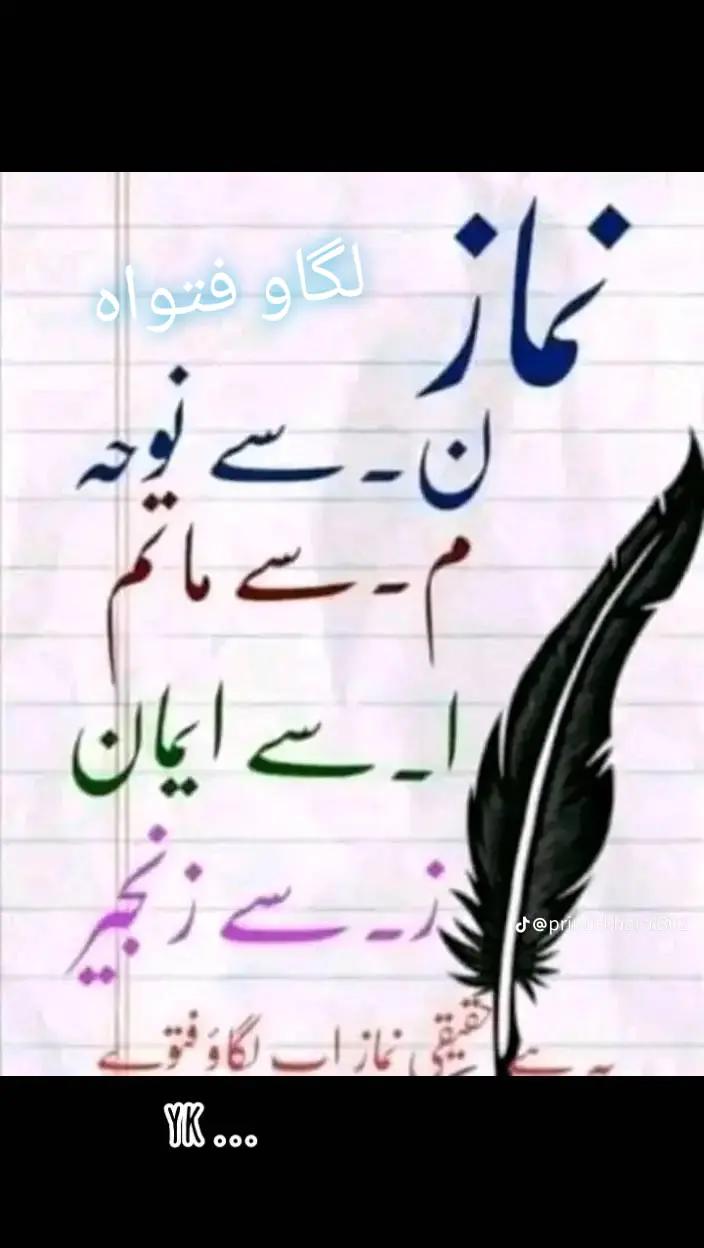 نماز
لگاو فتواہ
ن ۔ سے نوحہ
م ۔ سے ماتم
ا ۔ سے ایمان
ز ۔ سے زنجیر
یہ ہے حقیقی نماز اب لگاؤ فتوے
YK ...